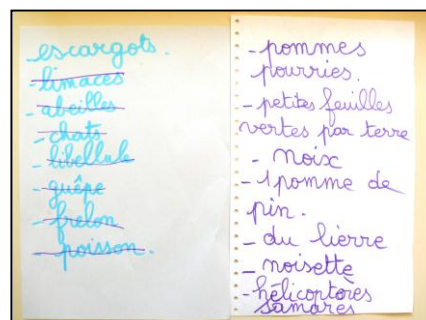 - escargots.
- limaces
- abeilles
- chats
- libellule
- guêpe
- frelon
- poisson.
- pommes
pourries.
- petites feuilles
vertes par terre
- noix
- 1 pomme de
pin.
- du lierre
- noisette
- hélicoptères
samares